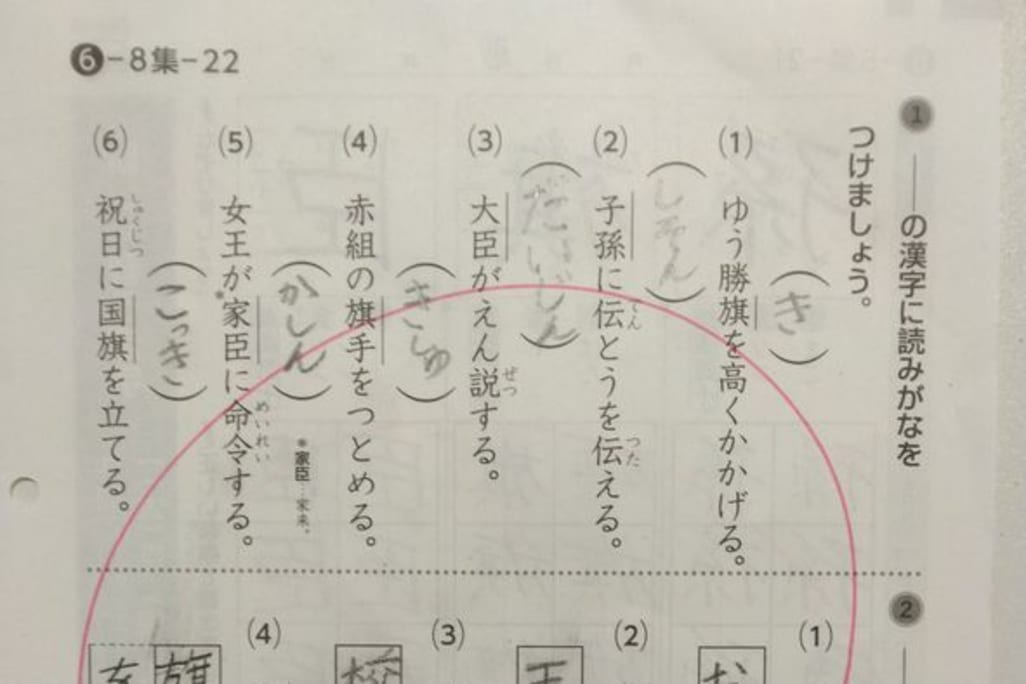 ❻-8集-22
❶ ――の漢字に読みがなを
つけましょう。
(1) ゆう勝旗を高くかかげる。
(き)
(2) 子孫に伝とうを伝える。
でん
つた
(しそん)
(3) 大臣がえん説する。
ぜつ
(だいじん)
(4) 赤組の旗手をつとめる。
(きしゅ)
(5) 女王が*家臣に命令する。
めいれい
(かしん)
*家臣…家来。
(6) 祝日に国旗を立てる。
しゅくじつ
(こっき)
❷
(1)
(2) 王
(3)
(4) 旗